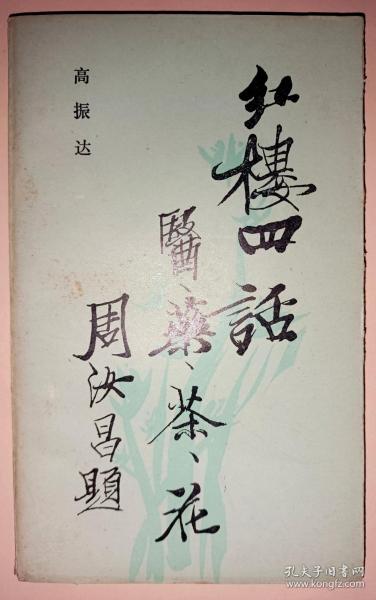 红楼四話
醫、薬、茶、花
周汝昌題
高振达
孔夫子旧书网
www.kongfz.com